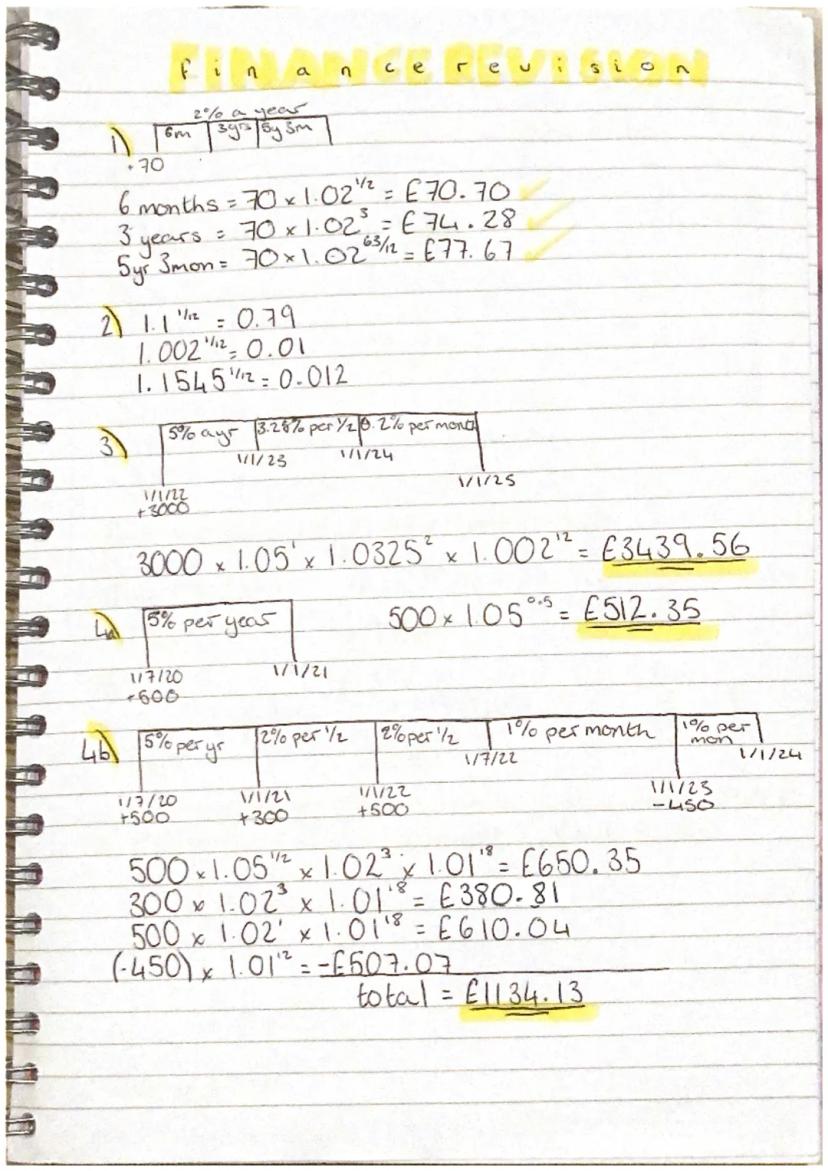 finance revision
2% a year
1) 6m 3yrs 5y 3m
+70
6 months = 70 × 1.02^1/2 = £70.70
3 years = 70 × 1.02^3 = £74.28
5yr 3mon = 70 × 1.02^63/12 = £77.67
2) 1.1^1/12 = 0.79
1.002^1/12 = 0.01
1.1545^1/12 = 0.012
3) 5% a yr 3.25% per 1/2 0.2% per month
1/1/23 1/1/24
1/1/22 1/1/25
+3000
3000 × 1.05^1 × 1.0325^2 × 1.002^12 = £3439.56
4a) 5% per year 500 × 1.05^0.5 = £512.35
1/7/20 1/1/21
+500
4b) 5% per yr 2% per 1/2 2% per 1/2 1% per month 1% per mon
1/7/22 1/1/24
1/7/20 1/1/21 1/1/22 1/1/23
+500 +300 +500 -450
500 × 1.05^1/2 × 1.02^3 × 1.01^18 = £650.35
300 × 1.02^3 × 1.01^18 = £380.81
500 × 1.02^1 × 1.01^18 = £610.04
(-450) × 1.01^12 = -£507.07
total = £1134.13